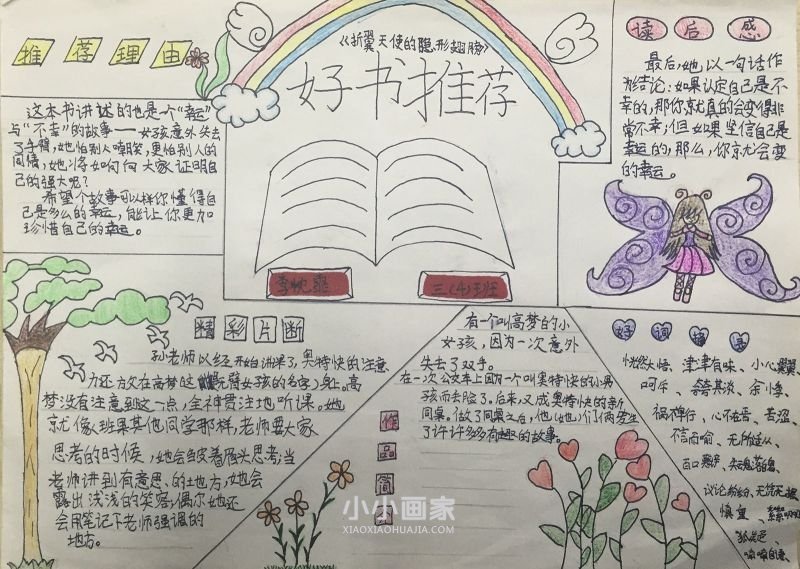 《折翼天使的隐形翅膀》
好书推荐
推荐理由
这本书讲述的也是一个"幸运"
与"不幸"的故事——女孩意外失去
了手臂,她怕别人嘲笑,更怕别人的
同情,她将如何向大家证明自
己的强大呢?
希望个故事可以样你懂得自
己是多么的幸运,能让你更加
珍惜自己的幸运。
三(4)班
读后感
最后,她,以一句话作
为结论:如果认定自己是不
幸的,那你就真的会变得非
常不幸;但如果坚信自己是
幸运的,那么,你就会变
的幸运。
精彩片断
孙老师以经开始讲课了,奥特快的注意
力还放在高梦这 无臂女孩的名字)身上。高
梦没有注意到这一点,全神贯注地听课。她
就像班果其他同学那样,老师要大家
思考的时候,她会皱着眉头思考;当
老师讲到有意思的地方,她会
露出浅浅的笑容;偶尔她还
会用笔记下老师强调的
地方。
作品简
有一个叫高梦的小
女孩,因为一次意外
失去了双手。
在一次公交车上因为一个叫奥特快的小男
孩而丢脸了。后来,又成奥特快的新
同桌。做了同桌之后,他(她)们俩发生
了许许多多有趣的故事。
好词摘录
恍然大悟、津津有味、小心翼翼、
呵斥、
祸不单行、心不在焉、苦涩、
不言而喻、无所适从、
议论纷纷、
慎重、
小小画家
XIAOXIAOHUAJIA.COM